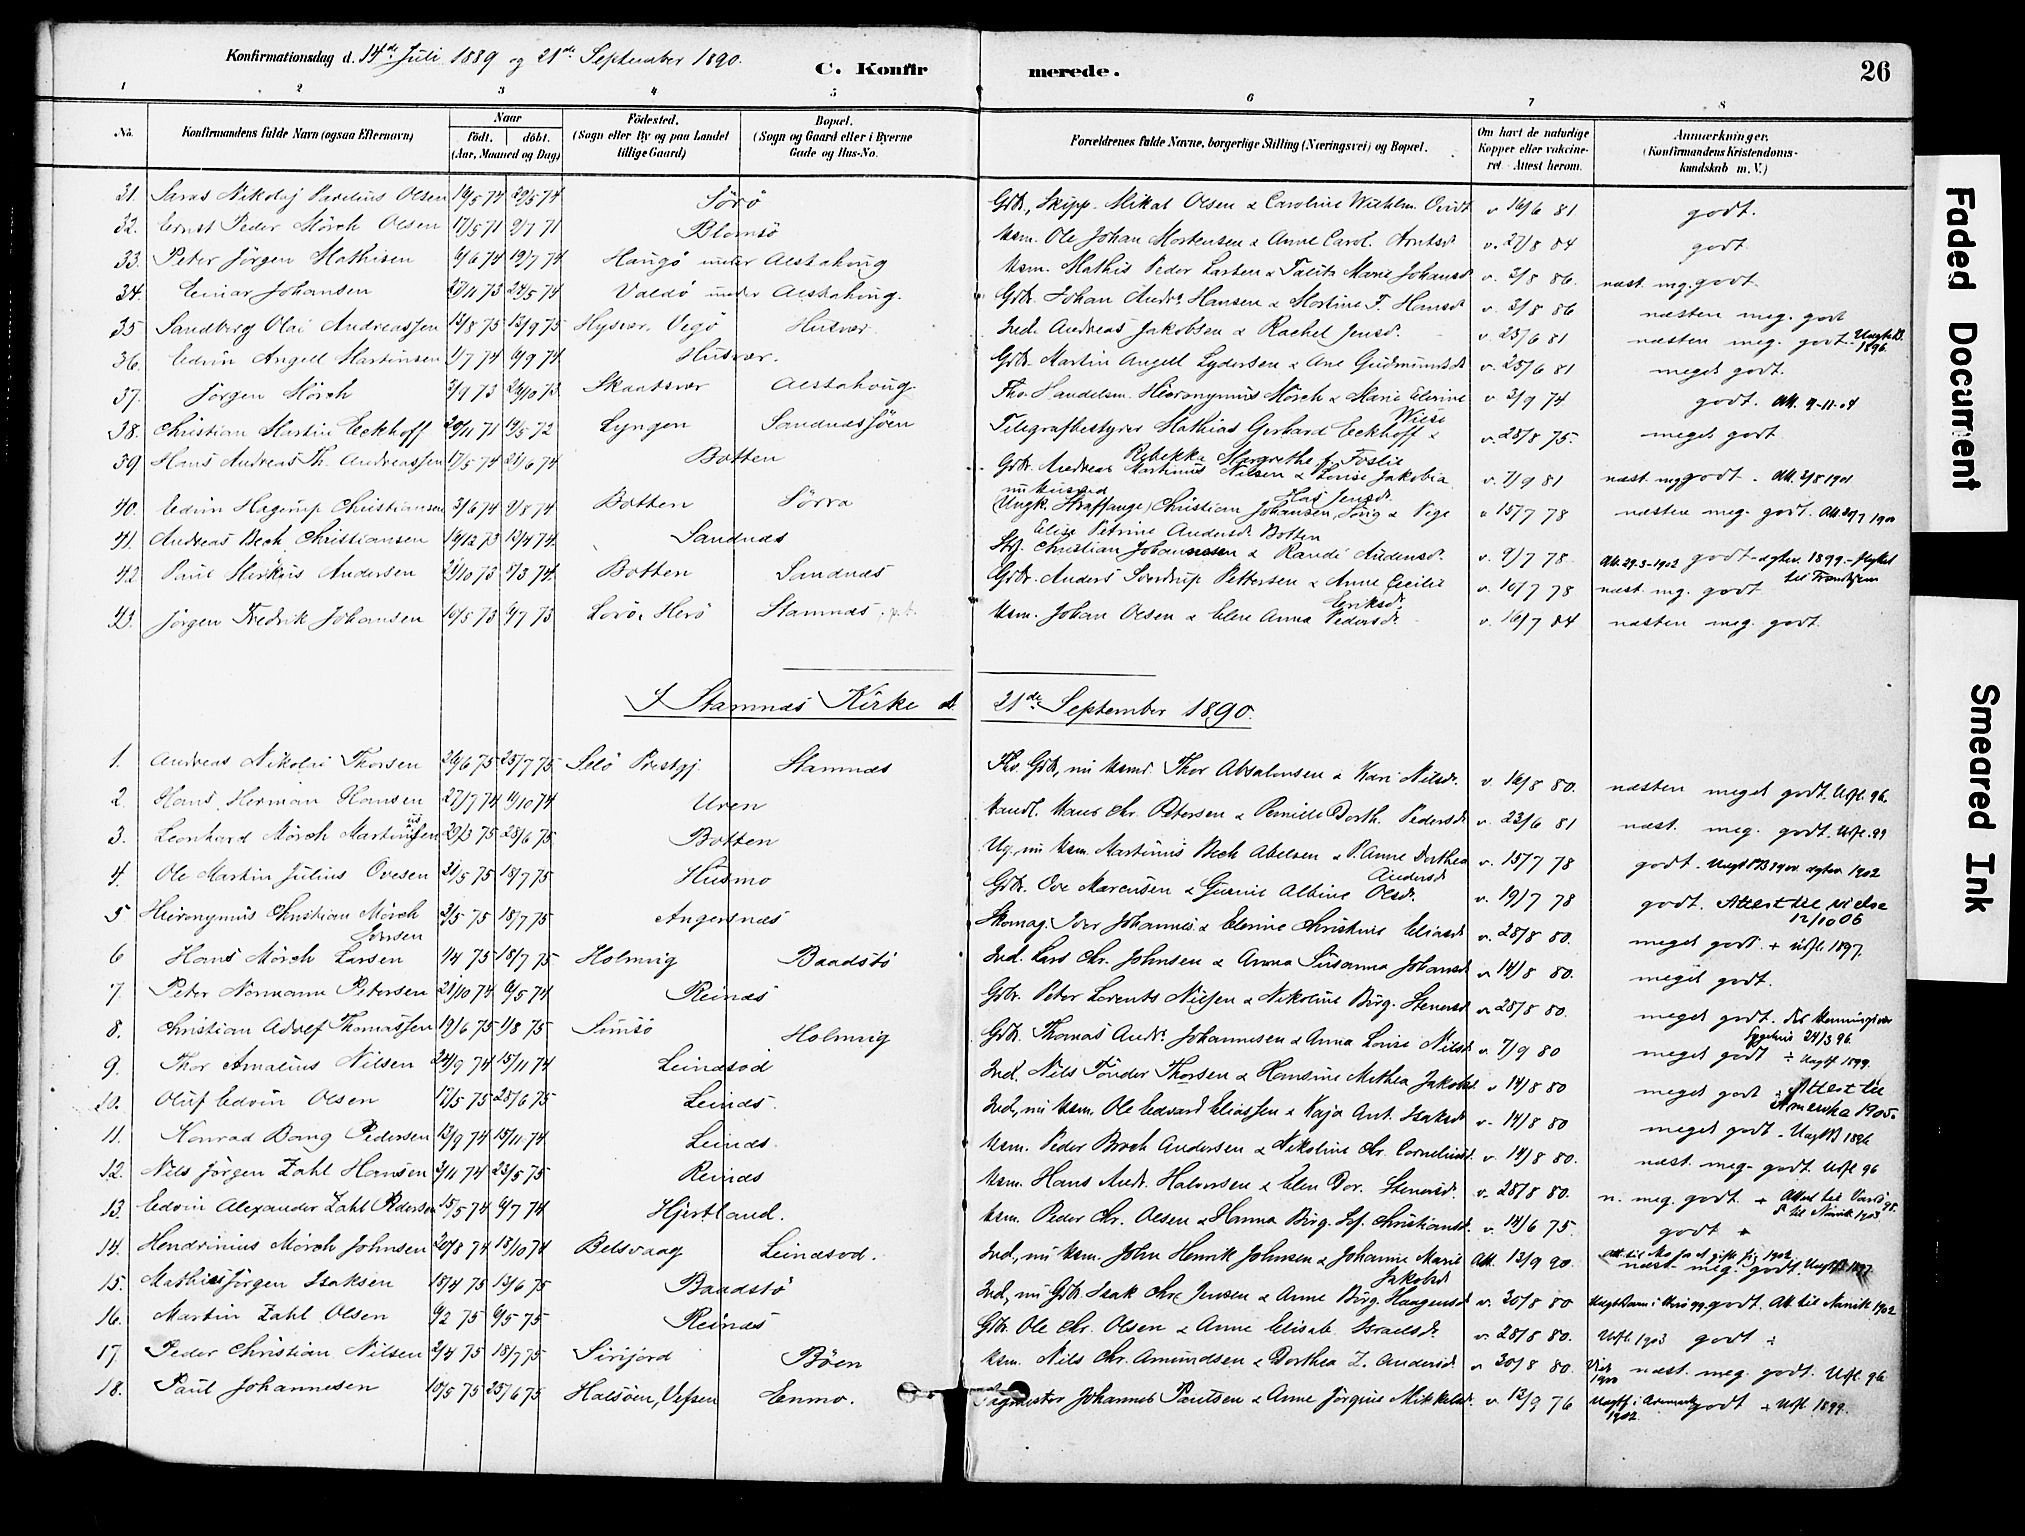 Konfirmationsdag d. 14de Juli 1889 og 21de September 1890.
C. Konfirmerede.
26
1 2 3 4 5 6 7 8
No.
Konfirmandens fulde Navn (ogsaa Efternavn)
Naar
födt. döbt.
(Aar, Maaned og Dag)
Födested.
(Sogn eller By og paa Landet
tillige Gaard)
Bopæl.
(Sogn og Gaard eller i Byerne
Gade og Hus-No.
Forældrenes fulde Navne, borgerlige Stilling (Næringsvei) og Bopæl.
Om havt de naturlige
Kopper eller vakcine-
ret - Attest herom.
Anmærkninger.
(Konfirmandens Kristendoms-
kundskab m. V.)
31. Nikolaj Olsen 16/5 74 Sörö Mikal Olsen & Caroline v 16/6 81 godt.
32. Ernst Peder Mörch Olsen 17/5 71 9/7 71 Blomsö Ole Johan Mortensen & Anne Carol. v. 27/8 84 godt
33. Peter Jörgen Mathisen 6/6 74 19/7 74 Haugö under Alstahoug Mathis Peder Larsen & Marie Johansd. v. 3/8 86. næst mg. godt
34. Einar Johansen 24/5 74 under Alstahoug. Gbr. Johan Andr. Hansen & Martine F. Hansd. v. 3/8 86 næsten meg. godt
35 Sandberg Olai Andreassen 13/8 75 13/9 75 Hysvær, Vegö Husvær Ind. Andreas Jakobsen & Rachel Jensd. v 25/6 81 næsten meg. godt. 1896.
36. Edvin Angell Martinsen 1/7 74 6/9 74 Husvær. Gbr. Martin Angell Lydersen & Ane Gudmundsd. v. 25/6 81 meget godt.
37. Jörgen Mörch 2/9 73 Alstahoug Handelsm. Hieronymus Mörch & Marie Elerine v 3/9 74 godt. Att. 9-11-04
Wiese
38. Christian Martin Eckhoff 20/11 71 19/5 72 Lyngen Sandnessjöen Telegrafbestyrer Mathias Gerhard Eckhoff & v. 25/8 75. meget godt
Rebekka Margrethe f. Foslie
39 Hans Andreas Th. Andreassen 17/5 74 21/6 74 Botten Gbr. Andreas Martinus Nilsen & Louise Jakobia v. 7/9 81 næst mg godt. Att. 3/8 1901
40. Edvin Hagerup Christiansen 3/6 74 2/8 74 Botten Sörra Ungk. (Straffange) Christian Johansen, & Pige v 15/7 78 næsten meg. godt.
Elise Petrine Andersd. Botten
41. Andreas Bech Christiansen 14/12 73 13/4 74. Sandnæs Christian Johannesen & Randi Andersd. v. 9/7 78. Att. 29.3-1902 godt 1899
42 Paul Markus Andersen 8/3 74. Botten Sandnæs Gbr. Anders Sverdrup Pettersen & Anne Cecilie v. 16/7 78 næst. mg. godt
Eriksd.
43. Jörgen Fredrik Johansen 16/5 73 6/7 73 Herö Stamnæs, p.t. Johan Olsen & Elen Anna Pedersd. v. 16/7 84 næsten meg. godt.
I Stamnæs Kirke d. 21de September 1890.
1. Andreas Nikolai Thorsen 26/6 75 25/7 75 Selö Prestgj. Stamnæs Thor Absalonsen & Kari Nilsd. v. 16/8 80. næsten meget godt. Udfl. 96.
2. Hans Herman Hansen 27/7 74 Uren Hans Chr. Petersen & Pernille Dorth. Pedersd. v. 23/6 81 næst. meg. godt. Udfl. 99
3. Leonhard Mörch Martinussen 28/6 75 Botten Martinus Bech Abelsen & P. Anne Dorthea v. 15/7 78 godt.
Andersd
4. Ole Martin Julius Ovesen 21/5 75 18/7 75 Husmo Gbr. Ove Marcusen & Albine Olsd. v. 19/7 78 godt. Attest til vielse
12/10 06
5 Hieronymus Christian Mörch 3/5 75 18/7 75 Angersnæs Skomag. Iver Johannes & Elerine Christine Eliasd. v. 28/8 80. meget godt. + udfl. 1897.
Iversen
6 Hans Mörch Larsen 1/4 75 18/7 75 Holmvig Baadstö Ind. Lars Chr. Johnsen & Anna Susanna Johansd. v 14/8 80. meget godt.
7. Peter Normann Petersen 21/10 74 Reinæs Gbr. Peter Lorents Nilsen & Nikoline Birg. Stensd. v 28/8 80. meget godt.
8. Christian Adolf Thomassen 19/6 75 1/8 75 Holmvig Gbr. Thomas Andr. Johannesen & Anna Lovise Nilsd. v. 7/9 80 meget godt ÷ 1899.
9. Thor Amalius Nilsen 24/9 74 15/11 74 Leinæsod Ind. Nils Tönder Thorsen & Hansine Mathea Jakobsd. v 14/8 80 meget godt Attest til
Amerika 1905.
10. Oluf Edvin Olsen 17/5 75 25/6 75 Leinæs. Ole Edvard Eliassen & Kaja Ant. Isaksd. v. 14/8 80 meget godt. 1896
11. Konrad Bang Pedersen 13/9 74 15/11 74 Leinæs. Peder Broch Andersen & Nikoline Chr. Corneliusd. v. 14/8 80. næst. meg. godt. Udfl. 96
12. Nils Jörgen Zahl Hansen 2/11 74 23/5 75 Reinæs Hans Andr. Halvorsen & Elen Dor. Stensd. v. 28/8 80. n. meg. godt. +
13. Edvin Alexander Zahl Pedersen 15/5 74 6/7 74 Hjertland. Peder Chr. Olsen & Hanna Birg. Sof. Christiansd. v. 14/6 75. godt
14. Hendrinius Mörch Johnsen 20/8 74 18/10 74 Belsvaag Leinæsod. John Henrik Johnsen & Johanne Marie Att. 13/9 90. næst meg. godt.
Jakobsd
15. Mathias Jörgen Isaksen 18/4 75 13/6 75 Baadstö Gbr. Isak Chr. Jensen & Anne Birg. Haagensd. v. 30/8 80 godt. Att. til Narvik 1902
16. Martin Zahl Olsen 6/2 75 9/5 75 Reinæs Gbr. Ole Chr. Olsen & Anne Elisab. Israelsd. v. 28/8 80. Udfl. 1903 godt ÷
17. Peder Christian Nilsen 2/4 75 18/7 75 Sörfjord Böen Nils Chr. Amundsen & Dorthea Z. Andersd. v 30/8 80. næst. meg. godt. Udfl. 96
18. Paul Johannesen 10/5 75 25/6 75 Halsöen, Vefsen Enmo. Johannes Paulsen & Anne Jörgine Mikkelsd. v. 13/9 76 godt + Udfl. 1899.
Faded Document
Smeared Ink